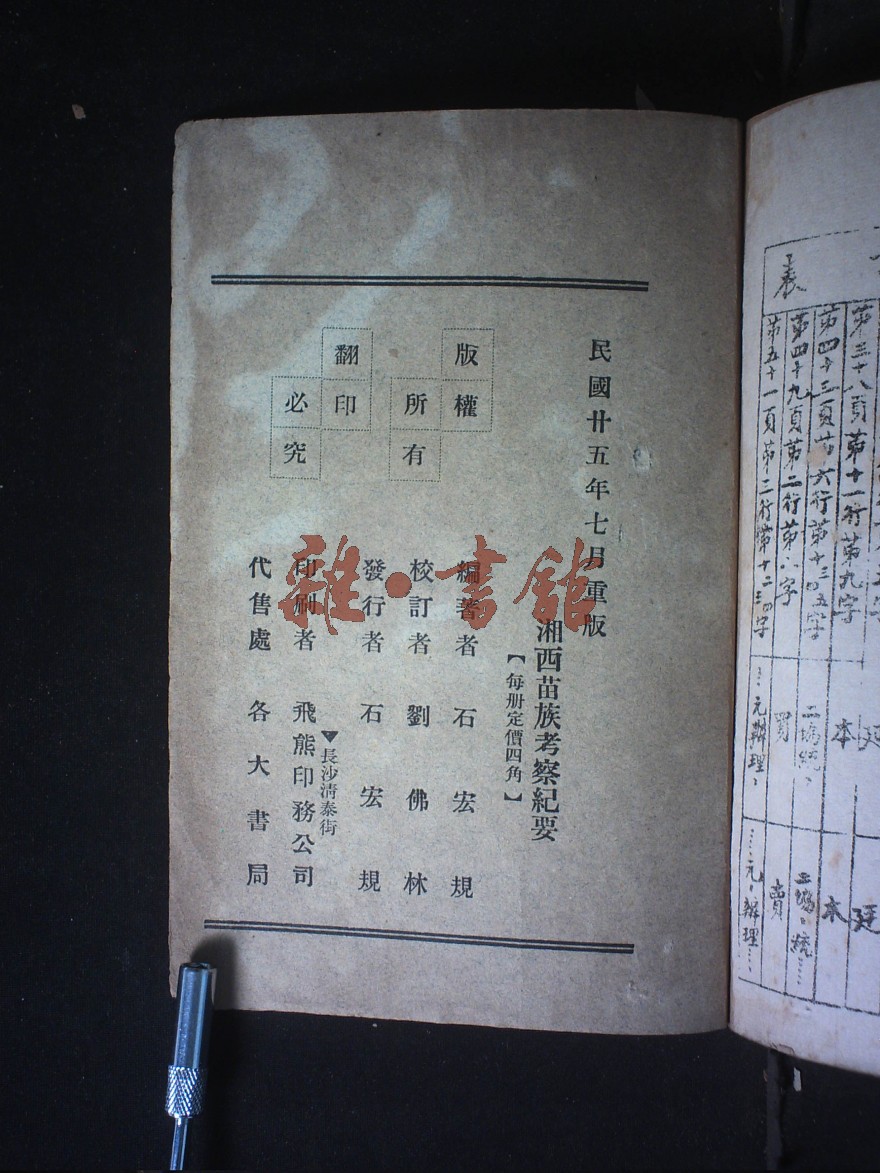 民國廿五年七月重版
湘西苗族考察紀要
【每册定價四角】
編著者 石宏規
校訂者 劉佛林
發行者 石宏規
▼長沙清泰街
印刷者 飛熊印務公司
代售處 各大書局
版權
所有
翻印
必究
雜·書館
表
第三十八頁第十一行第九字
本
本
第四十三頁第六行第十三四五字
第四十九頁第二行第六字
賣
第五十一頁第三行第十二三四字
…元辦理、
…元、辦理…